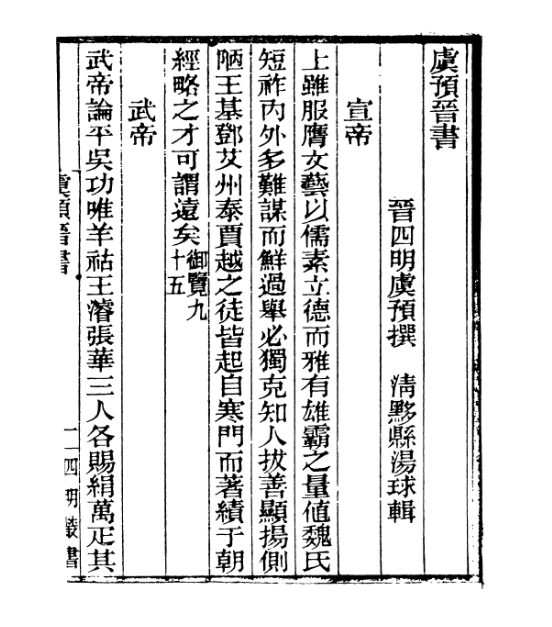 虞預晉書
晉四明虞預撰　清黟縣湯球輯
宣帝
上雖服膺文藝以儒素立德而雅有雄霸之量値魏氏
短祚內外多難謀而鮮過舉必獨克知人拔善顯揚側
陋王基鄧艾州泰賈越之徒皆起自寒門而著績于朝
經略之才可謂遠矣御覽九十五
武帝
武帝論平吳功唯羊祜王濬張華三人各賜絹萬疋其
虞預晉書
一
四明叢書